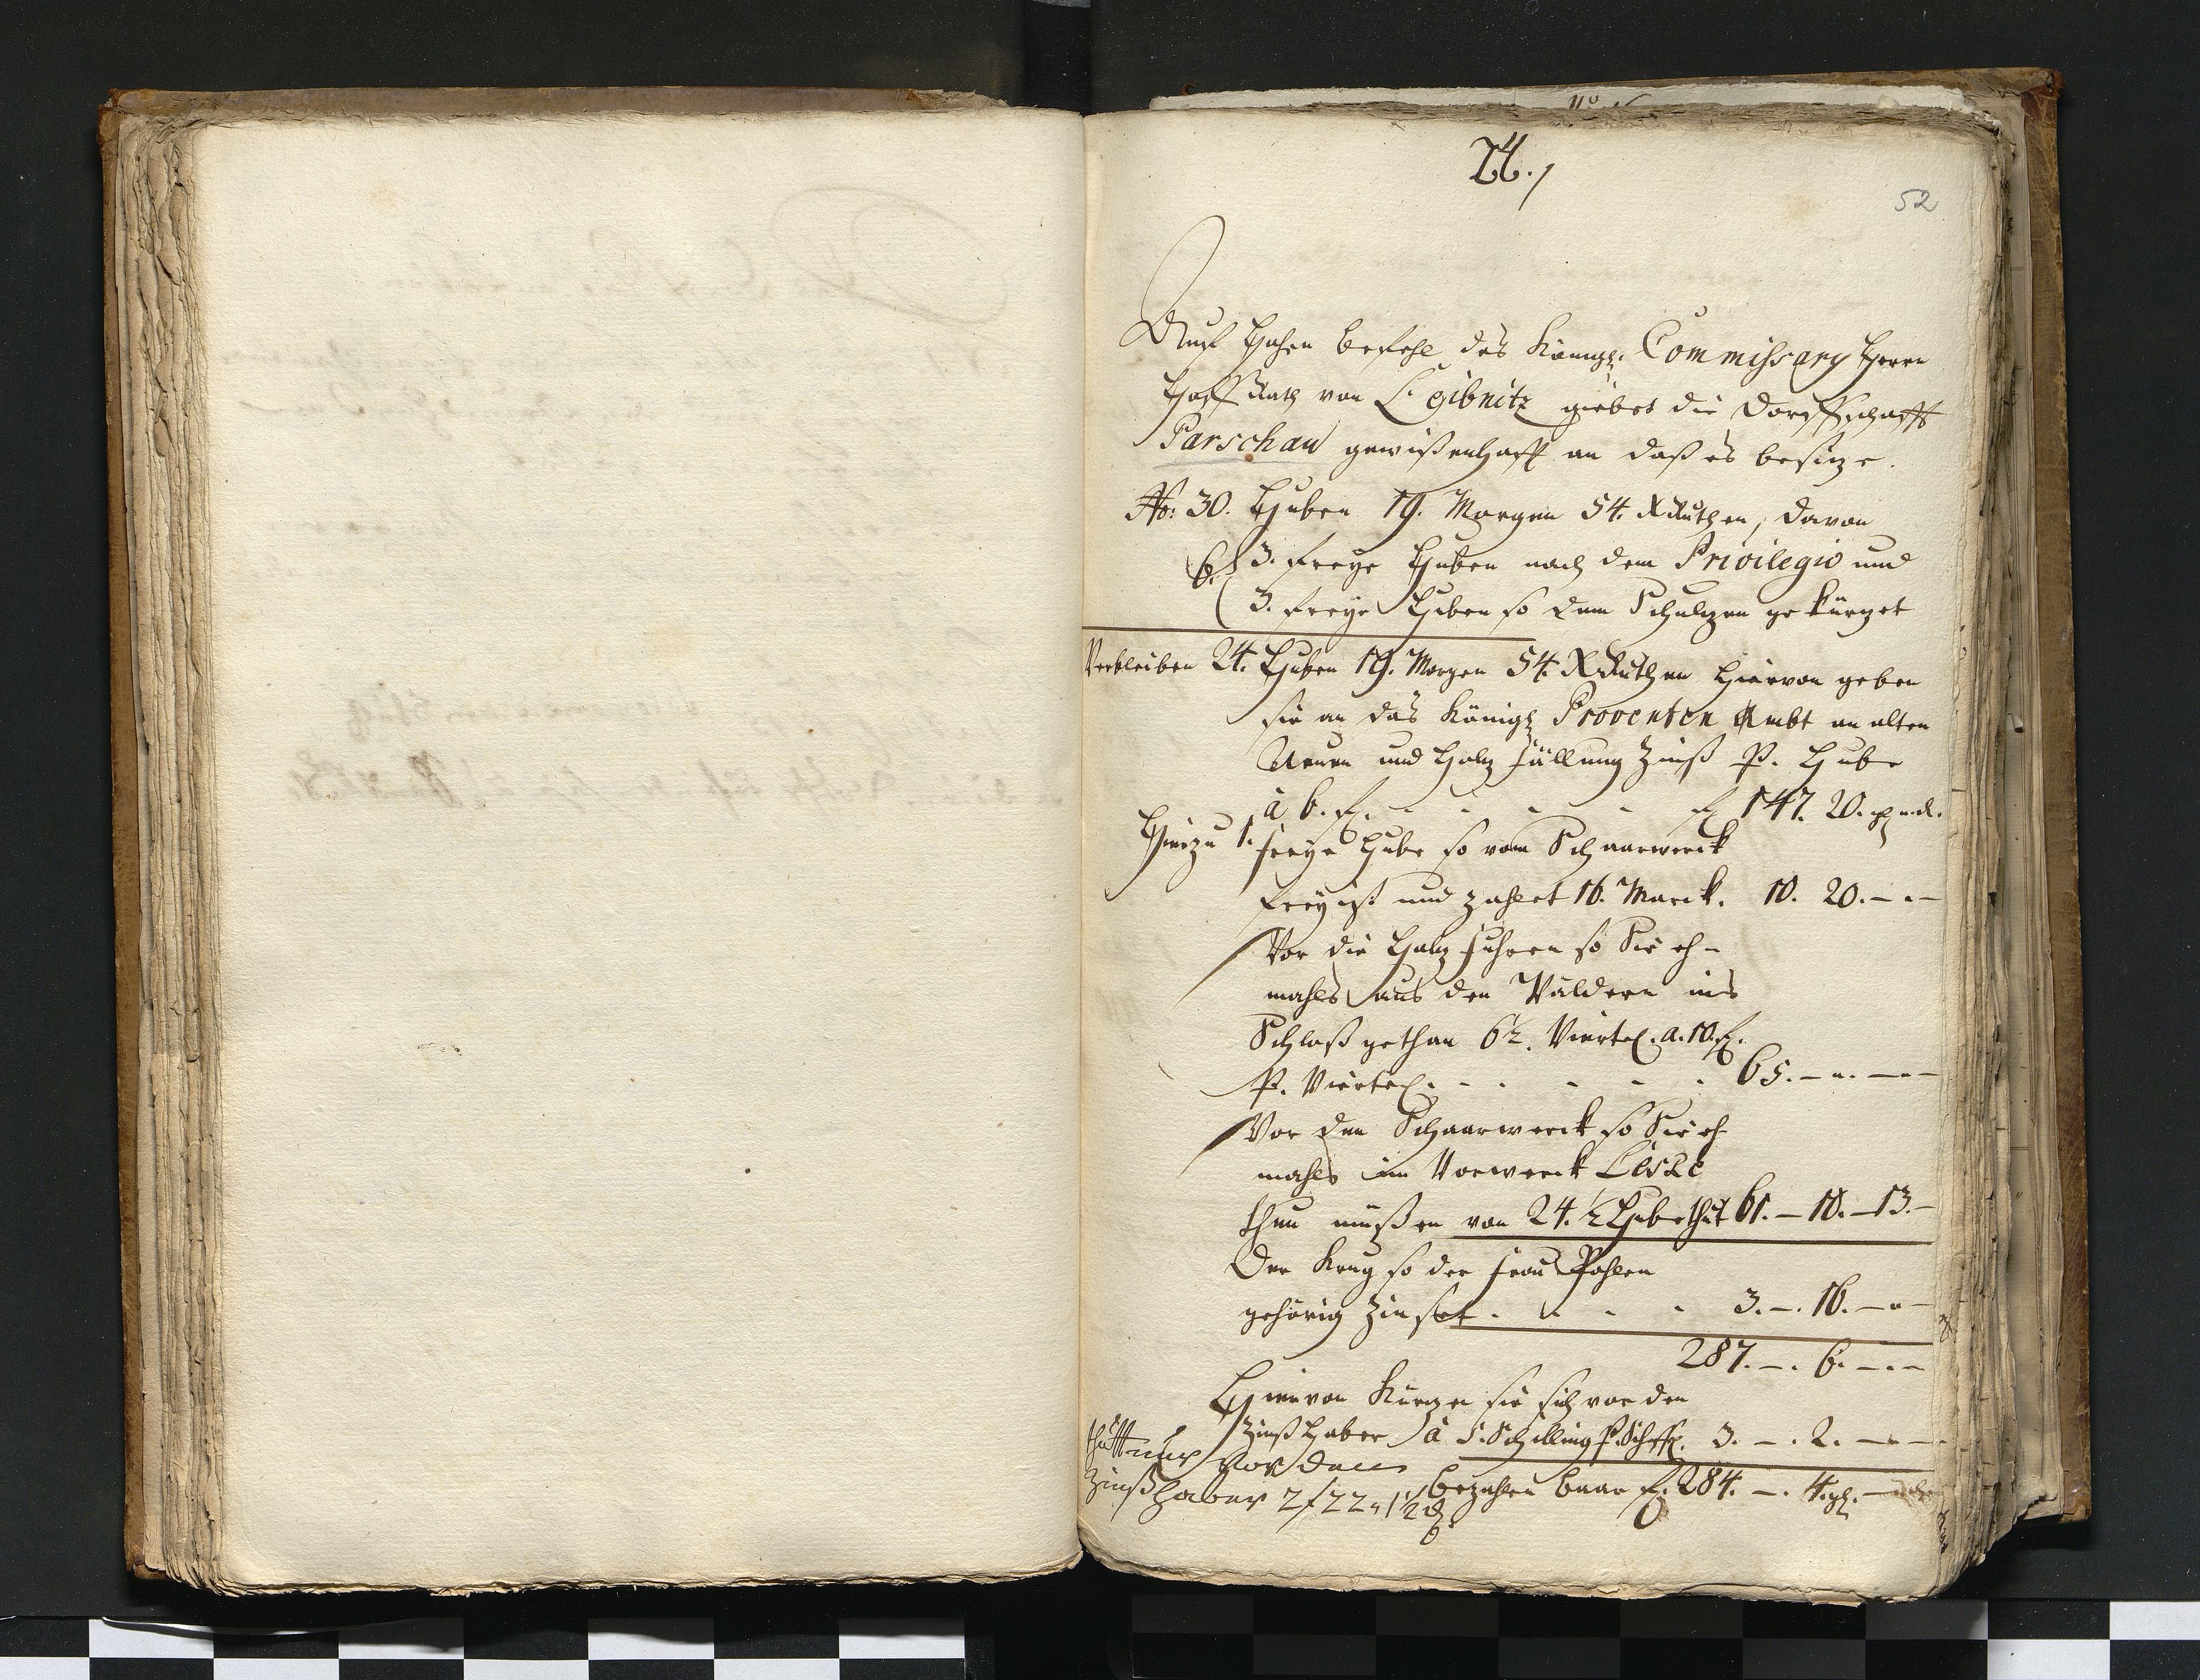 24.
52
Auf Hohen Befehl des Königl. Commissary Herrn
Hoff Rath von Leibnitz giebet die Dorffschafft
Parschau gewißenhafft an daß es besitze.
No: 30. Huben 19. Morgen 54. Ruthen, davon
6. 3. freye Huben nach dem Privilegio und
3. freye Huben so dem Schultzen gekürtzet
Verbleiben 24. Huben 19. Morgen 54. Ruthen hiervon geben
sie an das Königl Proventen Ambt an alten
Neuen und Holtz fällung Zinß P. Hube
à 6. f. - - - - f 147. 20. gl
Hierzu 1. freye Hube so vom Schaarwerck
frey ist und zahlet 16. Marck. 10. 20. - . -
Vor die Holtz fuhren so Sie eh-
mahls aus den Wäldern ins
Schloß gethan 6½. Viertel. a. 10. f.
P. Viertel. - - - - 65. - - . - - -
Vor den Schaarwerck so Sie eh
mahls im Vorwerck Leske
thun müßen von 24. ½ Hube thut 61. - 10. - 13. -
Der Krug so der Frau Pohlen
gehörig Zinset. - - - 3. - . 16. - - -
287. - . 6. - . -
Hiervon Kürtzen sie sich vor den
Zinß Haber à 5. Schilling P. Scheffl. 3. - . 2. - - -
thutt nur vor dem
Zinß haber 2 f 22 " 1½ d
bezahlen baar f. 284. - . 4. gl. -